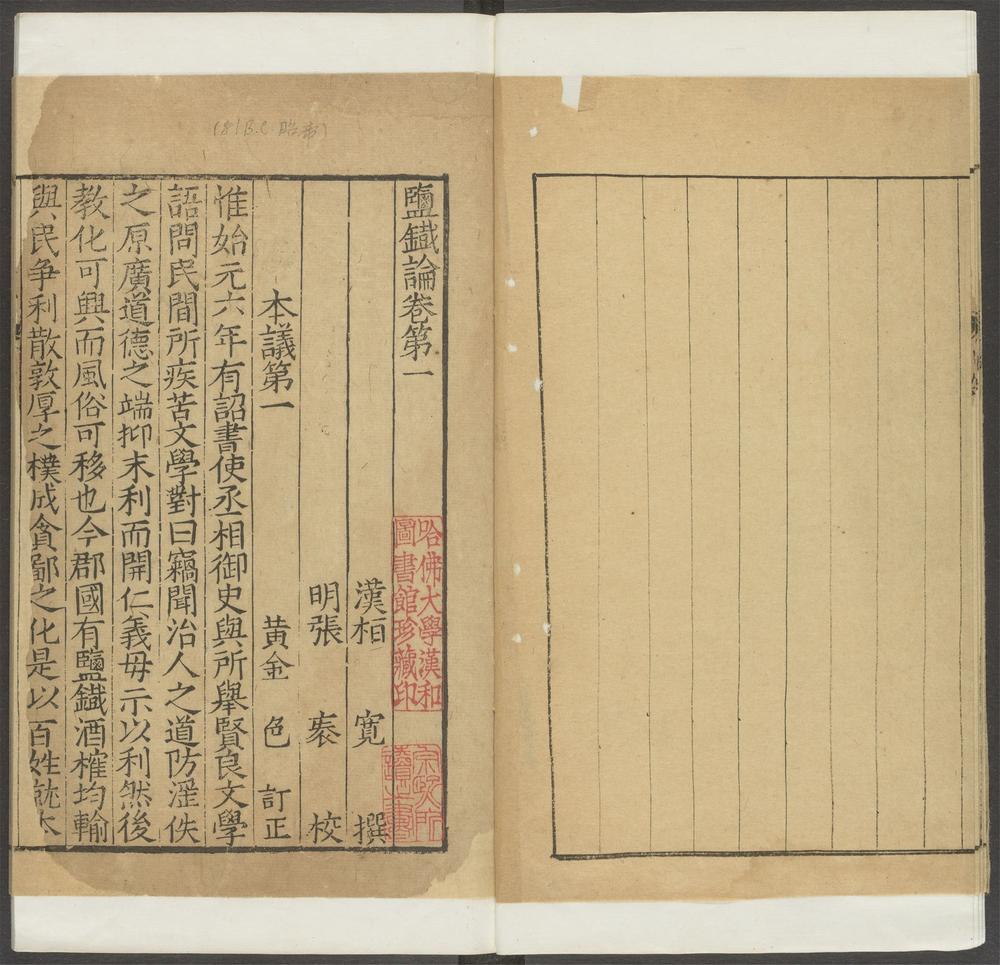 (81 B.C. 昭帝)
鹽鐵論卷第一
漢桓　寬　撰
明張　袠　校
本議第一　黃金　色　訂正
惟始元六年有詔書使丞相御史與所舉賢良文學
語問民間所疾苦文學對曰竊聞治人之道防淫佚
之原廣道德之端抑末利而開仁義毋示以利然後
教化可興而風俗可移也今郡國有鹽鐵酒榷均輸
與民爭利散敦厚之樸成貪鄙之化是以百姓就本
哈佛大學漢和
圖書館珍藏印